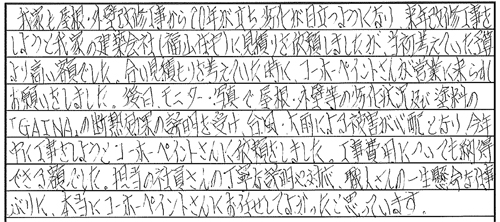 我家も屋根・外壁改修工事から20年が立ち劣化が目立つようになり 来年改修工事を
しようと我家の建築会社(福山住宅)に見積りを依頼しましたが 当初考えていた予算
より高い額でした。合い見積とりを考えていた時に、コーホーペイントさんが営業に来られ
お願いをしました。後日、モニター・写真で屋根・外壁等の劣化状況及び塗料の
「GAINA」の断熱効果の説明を受け 台風・大雨による被害が心配となり 今年
中に工事をしようとコーホーペイントさんに依頼しました。工事費用についても納得
できる額でした。担当の社員さんの丁寧な説明や対応、職人さんの一生懸命な仕事
ぶりに、本当にコーホーペイントさんにお任せしてよかったと思っています。